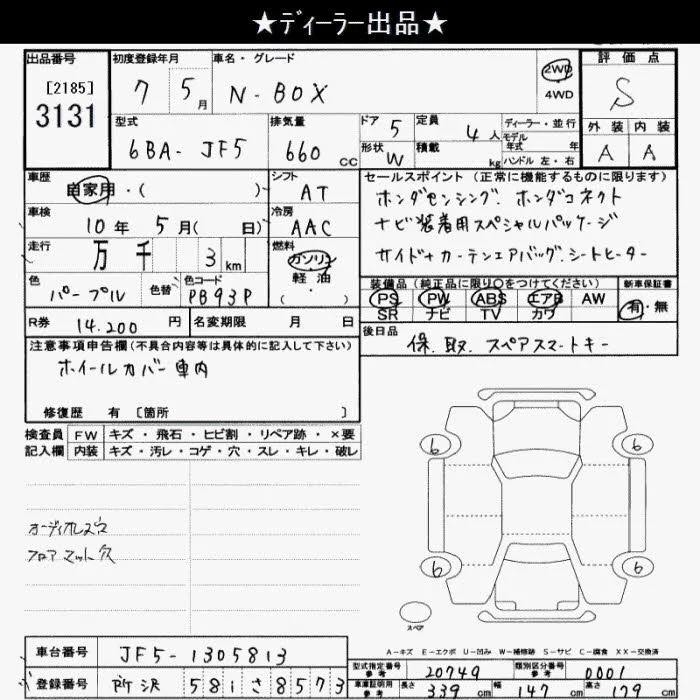 ★ディーラー出品★
出品番号 [2185] 3131
初度登録年月 7 5月
車名・グレード N-BOX
2WD
4WD
評価点 S
型式 6BA-JF5
排気量 660 CC
ドア 5
定員 4人
ディーラー・並行
モデル年式 年
形状 W
積載 kg
ハンドル 左・右
外装 内装
A A
車歴 自家用・( )
シフト AT
車検 10年5月(日)
冷房 AAC
走行 万千 3km
燃料 ガソリン 軽油 (・)
色 パープル
色替
色コード PB93P
セールスポイント(正常に機能するものに限ります)
ホンダセンシング、ホンダコネクト
ナビ装着用スペシャルパッケージ
サイド+カーテンエアバッグ、シートヒーター
装備品(純正品に限り○をつけてください)
PS PW ABS エアB AW
SR ナビ TV カワ
新車保証書 有・無
R券 14,200円
名変期限 月 日
後日品 保、取、スペアスマートキー
注意事項申告欄(不具合内容等は具体的に記入して下さい)
ホイールカバー車内
修復歴 有 [箇所 ]
検査員記入欄
FW キズ・飛石・ヒビ割・リペア跡・×要
内装 キズ・汚レ・コゲ・穴・スレ・キレ・破レ
オーディオレス穴
フロアマット穴
6 6
6 6
スペア
A-キズ E-エクボ U-凹み W-補修跡 S-サビ C-腐食 XX-交換済
車台番号 JF5-1305813
登録番号 所沢 581 さ 8573
型式指定番号 参考 20749
類別区分番号 参考 0001
車庫証明用 参考 長さ 339cm 幅 147cm 高さ 179cm